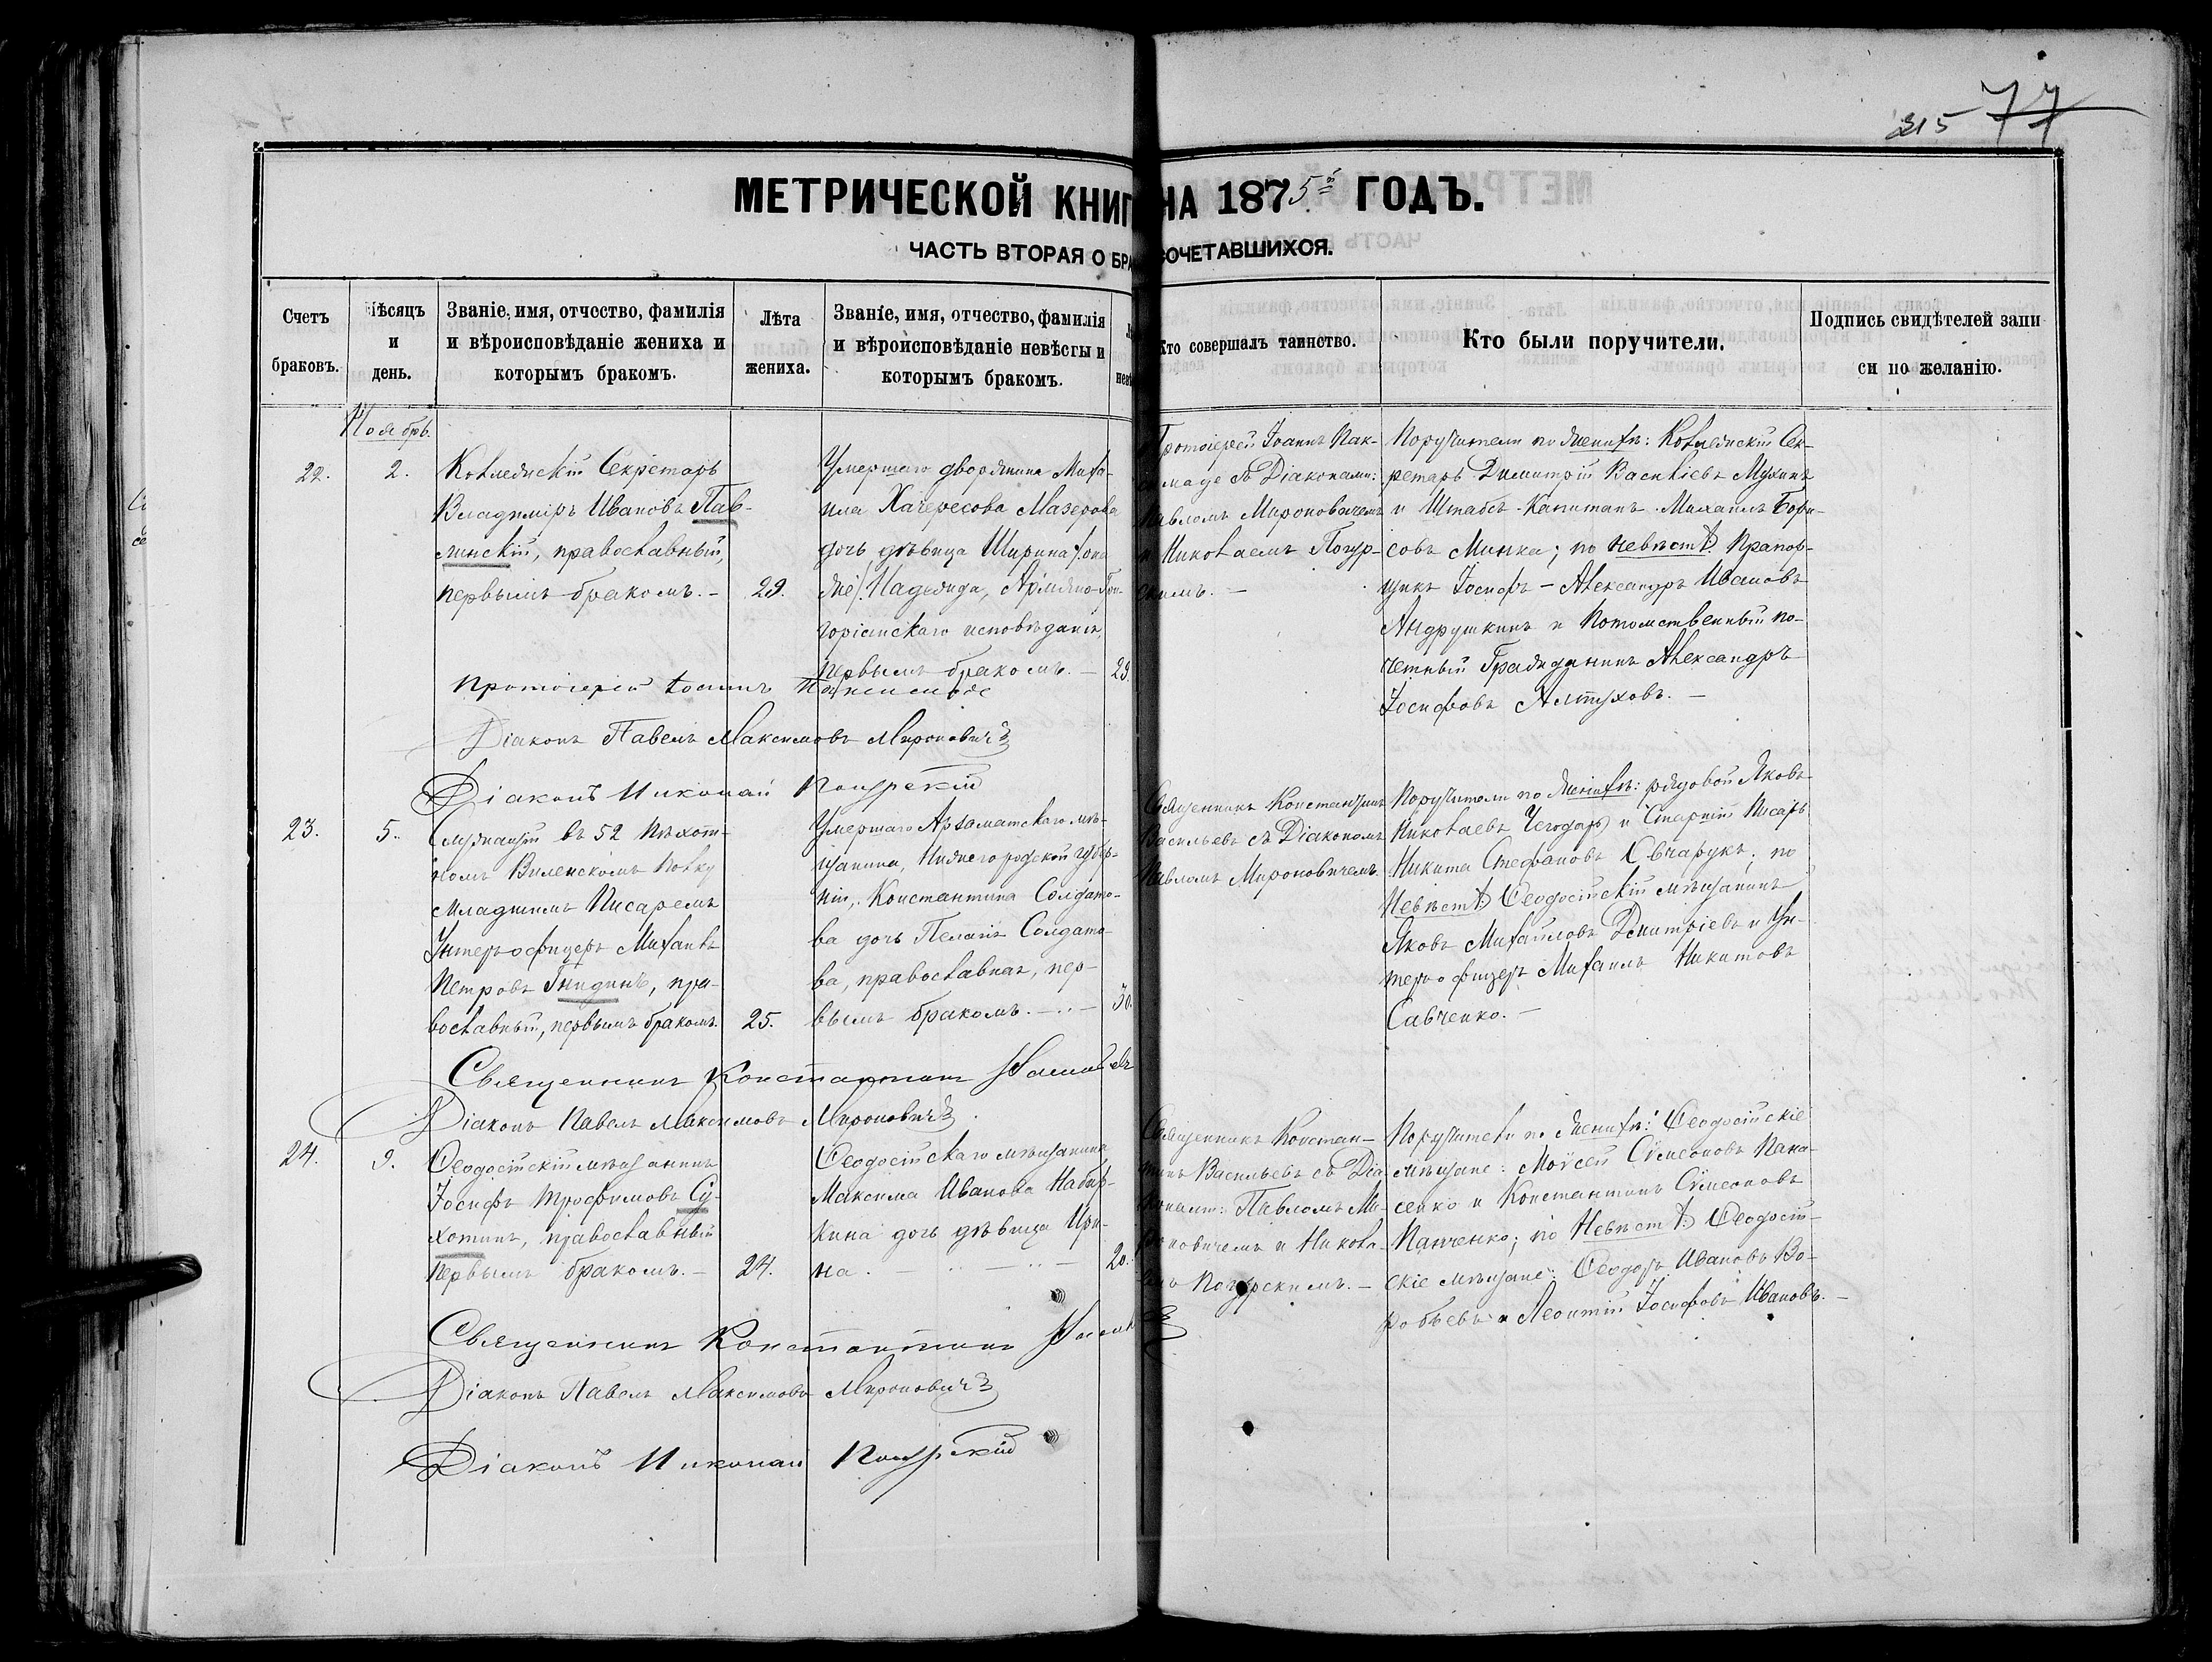 315 77
МЕТРИЧЕСКОЙ КНИГ НА 1875й ГОДЪ.
ЧАСТЬ ВТОРАЯ О БРА СОЧЕТАВШИХСЯ.
Счетъ браковъ.
Мѣсяцъ и день.
Званіе, имя, отчество, фамилія
и вѣроисповѣданіе жениха и
которымъ бракомъ.
Лѣта
жениха.
Званіе, имя, отчество, фамилія
и вѣроисповѣданіе невѣсты и
которымъ бракомъ.
Кто совершалъ таинство.
Кто были поручители.
Подпись свидѣтелей запи
си по желанію.
Ноябрь.
22.
2.
Коллежскій Секретарь
Владиміръ Ивановъ Пав-
линскій, православный,
первымъ бракомъ. –
29.
Умершаго дворянина Миха-
ила Хачересова Мазерова
дочь дѣвица Ширина /она
же/ Надежда, Армяно-Гри-
горіанскаго исповѣданія,
первымъ бракомъ. –
23.
Протоіерей Іоаннъ Пак-
симаде съ Діаконами:
Павломъ Мироновичемъ
и Николаемъ Погор-
скимъ. –
Поручители по женихѣ: Коллежскій Сек-
ретарь Димитрій Василіевъ Мухинъ
и Штабсъ-Капитанъ Михаилъ Бори-
совъ Минка; по невѣстѣ: Прапор-
щикъ Іосифъ-Александръ Ивановъ
Андрушкинъ и Потомственный по-
четный Гражданинъ Александръ
Іосифовъ Алтуховъ. –
Протоіерей Іоаннъ Паксимаде
Діаконъ Павелъ Максимовъ Мироновичъ
Діаконъ Николай
23.
5.
Служащій въ 52 Пѣхот-
номъ Виленскомъ Полку
Младшимъ Писаремъ
Унтеръ-офицеръ Михаилъ
Петровъ Гнидинъ, пра-
вославный, первымъ бракомъ.
25.
Умершаго Арзаматскаго мѣ-
щанина, Нижегородской губер-
ніи, Константина Солдато-
ва дочь Пелагія Солдато-
ва, православная, пер-
вымъ бракомъ. –
30.
Священникъ Константинъ
Васильевъ съ Діакономъ
Павломъ Мироновичемъ.
Поручители по женихѣ: рядовой Яковъ
Николаевъ Чегодарь и Старшій Писарь
Никита Стефановъ Овчарукъ; по
Невѣстѣ: Ѳеодосійскій мѣщанинъ
Яковъ Михаиловъ Дмитріевъ и Ун-
теръ-офицеръ Михаилъ Никитовъ
Савченко. –
Священникъ Константинъ Васильевъ
Діаконъ Павелъ Максимовъ Мироновичъ
24.
9.
Ѳеодосійскій мѣщанинъ
Іосифъ Трофимовъ Су-
хотинъ, православный
первымъ бракомъ. –
24.
Ѳеодосійскаго мѣщанина
Максима Иванова
кина дочь дѣвица Ири-
на. –
20.
Священникъ Констан-
тинъ Васильевъ съ Діа-
конами: Павломъ Ми-
роновичемъ и Никола-
емъ Погорскимъ. –
Поручители по женихѣ: Ѳеодосійскіе
мѣщане: Моѵсей Сѵмеоновъ Пана-
сенко и Константинъ Сѵмеоновъ
Панченко; по Невѣстѣ: Ѳеодосій-
скіе мѣщане: Ѳеодоръ Ивановъ Во-
робьевъ и Леонтій Іосифовъ Ивановъ. –
Священникъ Константинъ
Діаконъ Павелъ Максимовъ Мироновичъ
Діаконъ Николай